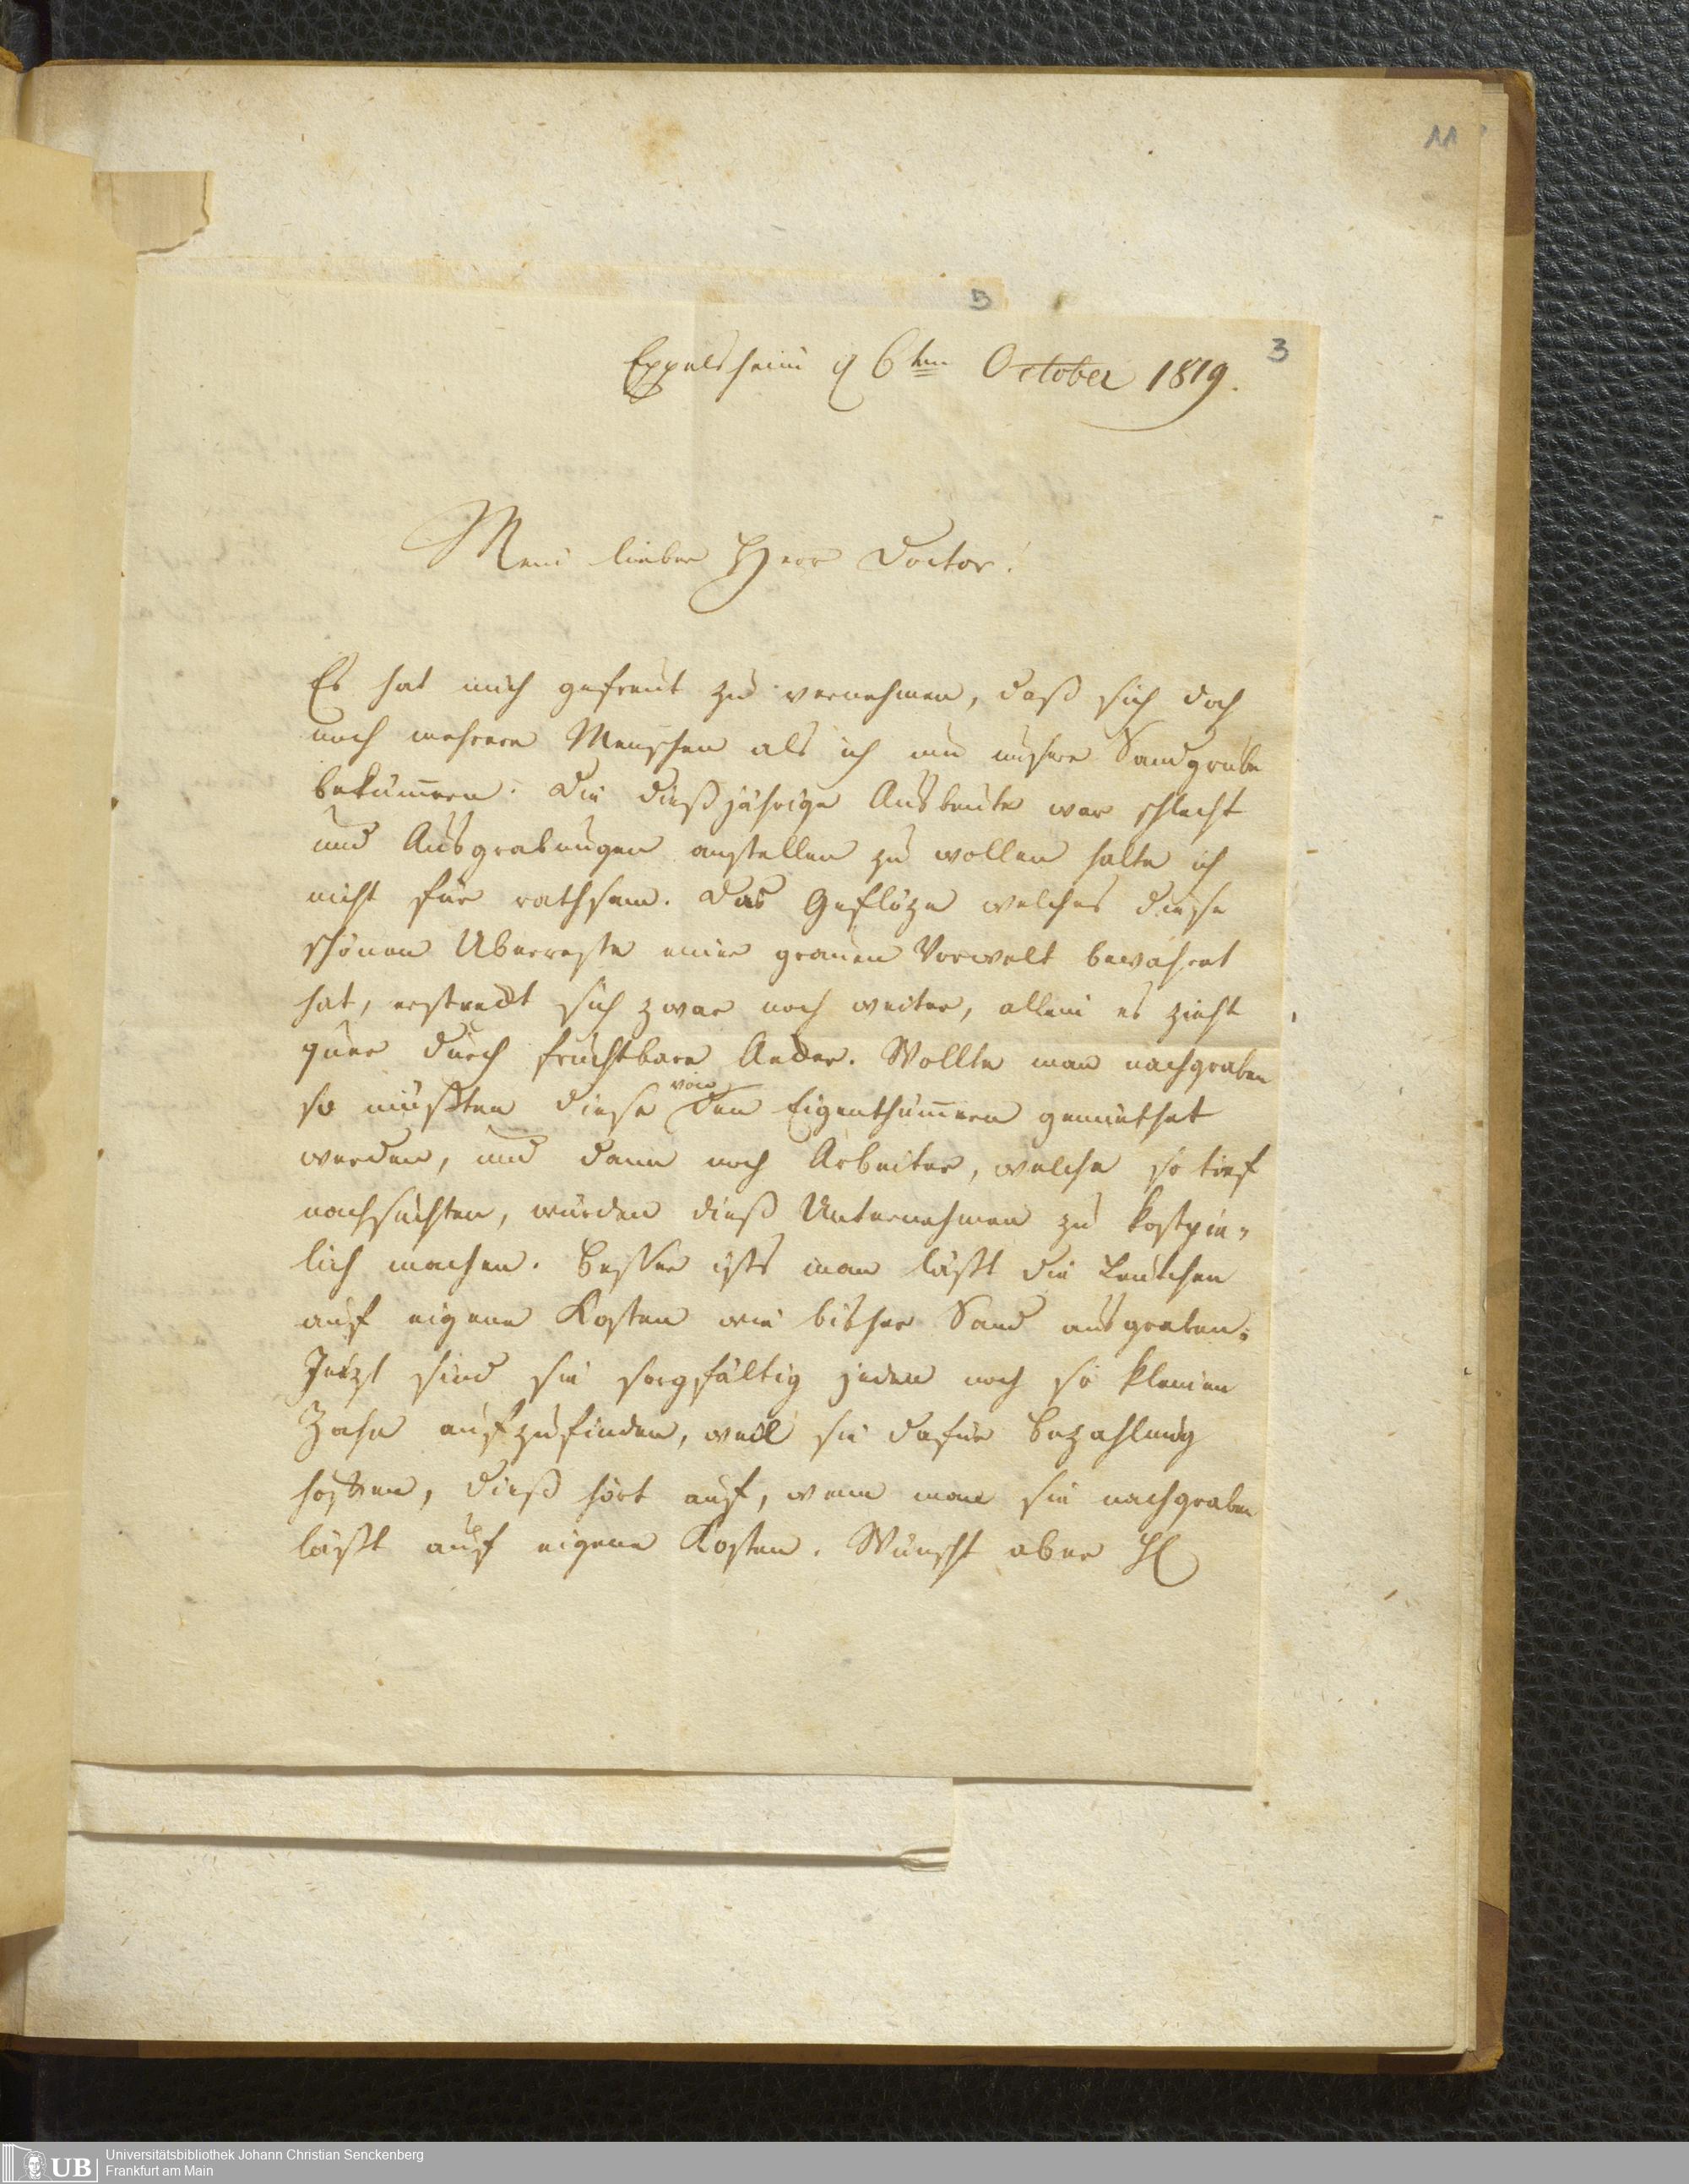 11
3
3
Eppelsheim d 6ten October 1819.
Mein lieber Herr Doctor!
Es hat mich gefreut zu vernehmen, daß sich doch
noch mehrere Menschen als ich um unsere Sandgrube
bekümern. Die dießjährige Ausbeute war schlecht
und Ausgrabungen anstellen zu wollen halte ich
nicht für rathsam. Das Geflöze welches diese
schönen Uberreste einer grauen Vorwelt bewahret
hat, erstreckt sich zwar noch weiter, allein es zieht
quer durch fruchtbare Aecker. Wollte man nachgraben
so müßten diese von den Eigenthümern gemiethet
werden, und dann noch Arbeiter, welche so tief
nachsuchten, würden dieß Unternehmen zu kostpie„
lich machen. Besser ists man läßt die Leutchen
auf eigene Kosten wie bisher Sand ausgraben;
Jetzt sind sie sorgfältig jeden noch so kleinen
Zahn aufzufinden, weil sie dafür Bezahlung
hoffen, dieß hört auf, wenn man sie nachgraben
läßt auf eigene Kosten. Wünscht aber H
UB
Universitätsbibliothek Johann Christian Senckenberg
Frankfurt am Main